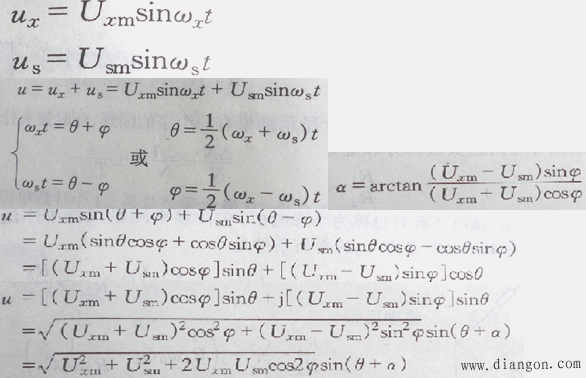 uₓ = Uₓₘsinωₓt
uₛ = Uₛₘsinωₛt
u = uₓ + uₛ = Uₓₘsinωₓt + Uₛₘsinωₛt
ωₓt = θ + φ θ = 1/2 (ωₓ + ωₛ) t
或
ωₛt = θ − φ φ = 1/2 (ωₓ − ωₛ) t
α = arctan (Uₓₘ − Uₛₘ)sinφ / (Uₓₘ + Uₛₘ)cosφ
u = Uₓₘsin(θ + φ) + Uₛₘsin(θ − φ)
= Uₓₘ(sinθcosφ + cosθsinφ) + Uₛₘ(sinθcosφ − cosθsinφ)
= [(Uₓₘ + Uₛₘ)cosφ]sinθ + [(Uₓₘ − Uₛₘ)sinφ]cosθ
u = [(Uₓₘ + Uₛₘ)cosφ]sinθ + j[(Uₓₘ − Uₛₘ)sinφ]sinθ
= √((Uₓₘ + Uₛₘ)²cos²φ + (Uₓₘ − Uₛₘ)²sin²φ) sin(θ + α)
= √(U²ₓₘ + U²ₛₘ + 2UₓₘUₛₘcos2φ) sin(θ + α)
www.diangon.com